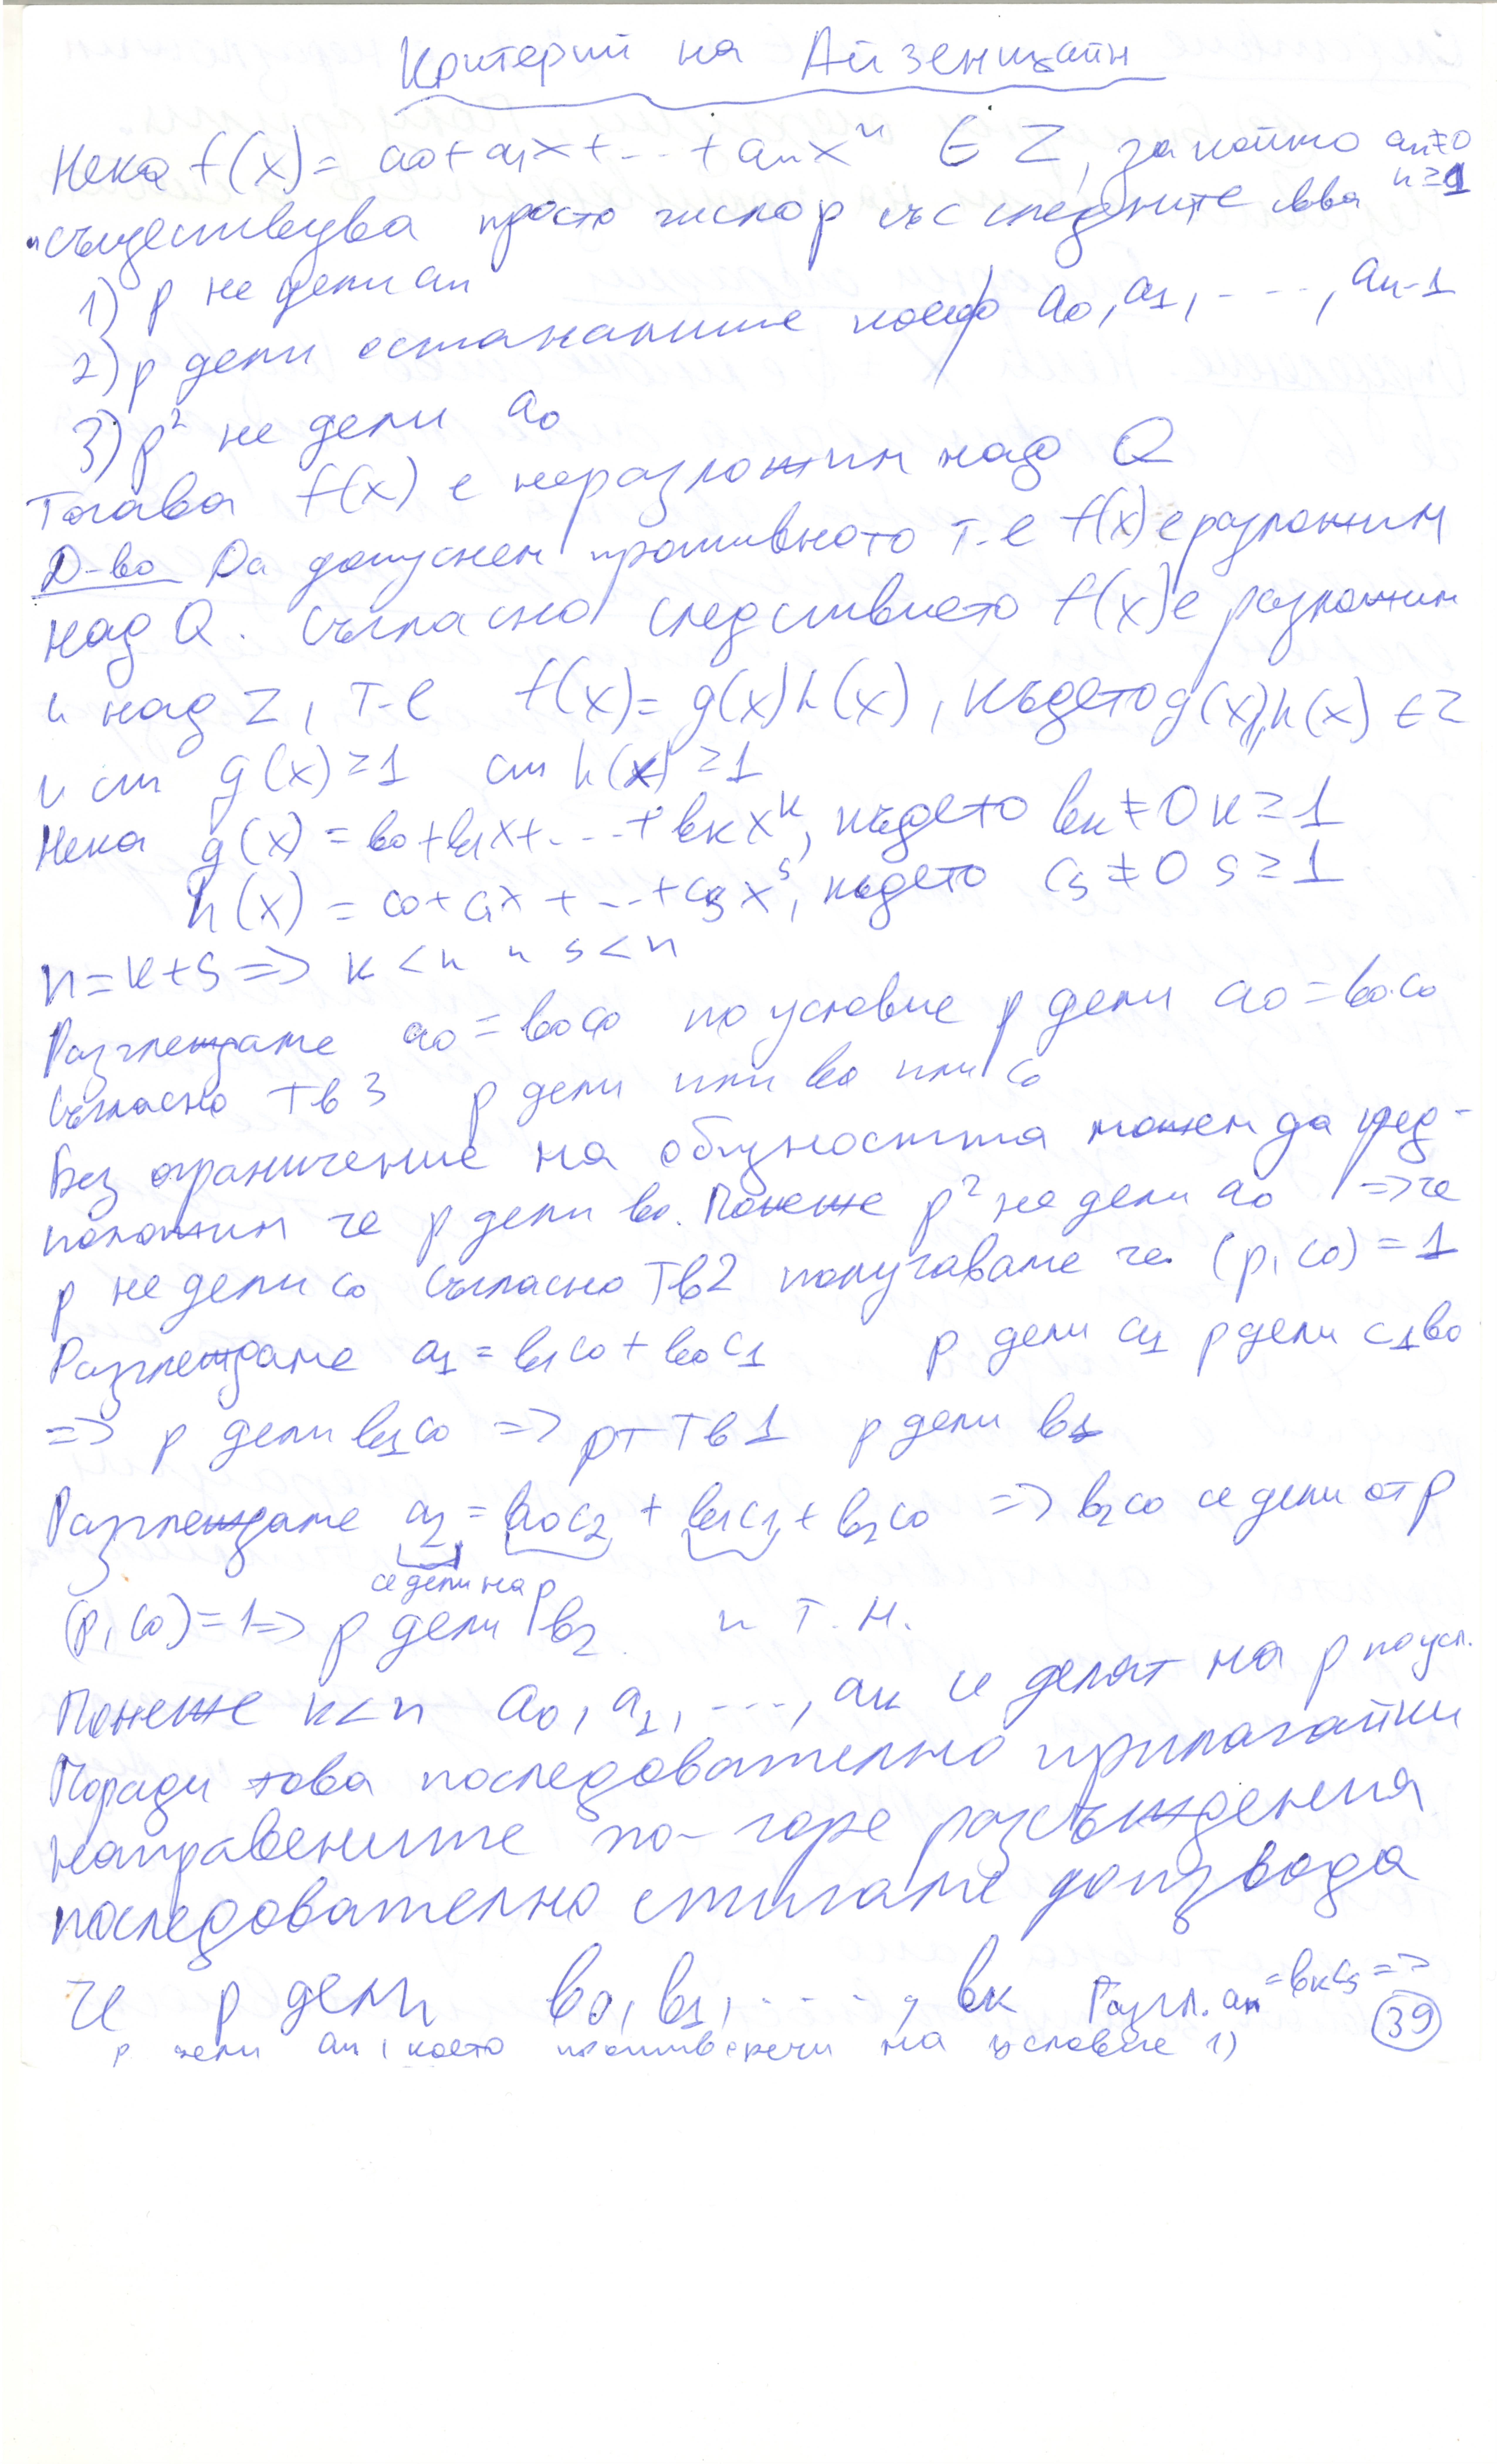 Критерий на Айзенщайн
Нека f(x)= a0+a1x+...+anx^n ∈ Z, за който an≠0
n≥1
и съществува просто число p със следните сва
1) p не дели an
2) p дели останалите коеф a0, a1, ...., an-1
3) p² не дели a0
Тогава f(x) е неразложим над Q
Д-во Да допуснем противното т-е f(x) е разложим
над Q. Съгласно следствието f(x) е разложим
и над Z, т-е f(x)= g(x)h(x), където g(x),h(x) ∈ Z
и ст g(x)≥1 ст h(x)≥1
Нека g(x) = b0+b1x+...+bkx^k, където bk≠0 k≥1
h(x) = c0+c1x+...+csx^s, където cs≠0 s≥1
n=k+s => k<n и s<n
Разглеждаме a0=b0c0 по условие p дели a0=b0.c0
Съгласно Тв3 p дели или b0 или c0
Без ограничение на общността можем да пред-
положим че p дели b0. Понеже p² не дели a0 => че
p не дели c0 Съгласно Тв2 получаваме че (p,c0)=1
Разглеждаме a1=b1c0+b0c1 p дели a1 p дели c1b0
=> p дели b1c0 => от Тв1 p дели b1
Разглеждаме a2=b0c2+b1c1+b2c0 => b2c0 се дели от p
се дели на p
(p,c0)=1=> p дели b2 и т.н.
Понеже k<n a0, a1, ..., ak се делят на p по усл.
Поради това последователно прилагайки
направените по-горе разсъждения
последователно стигаме до извода
че p дели b0, b1, ...., bk Разгл. an=bkcs =>
p дели an, което противоречи на условие 1)
39